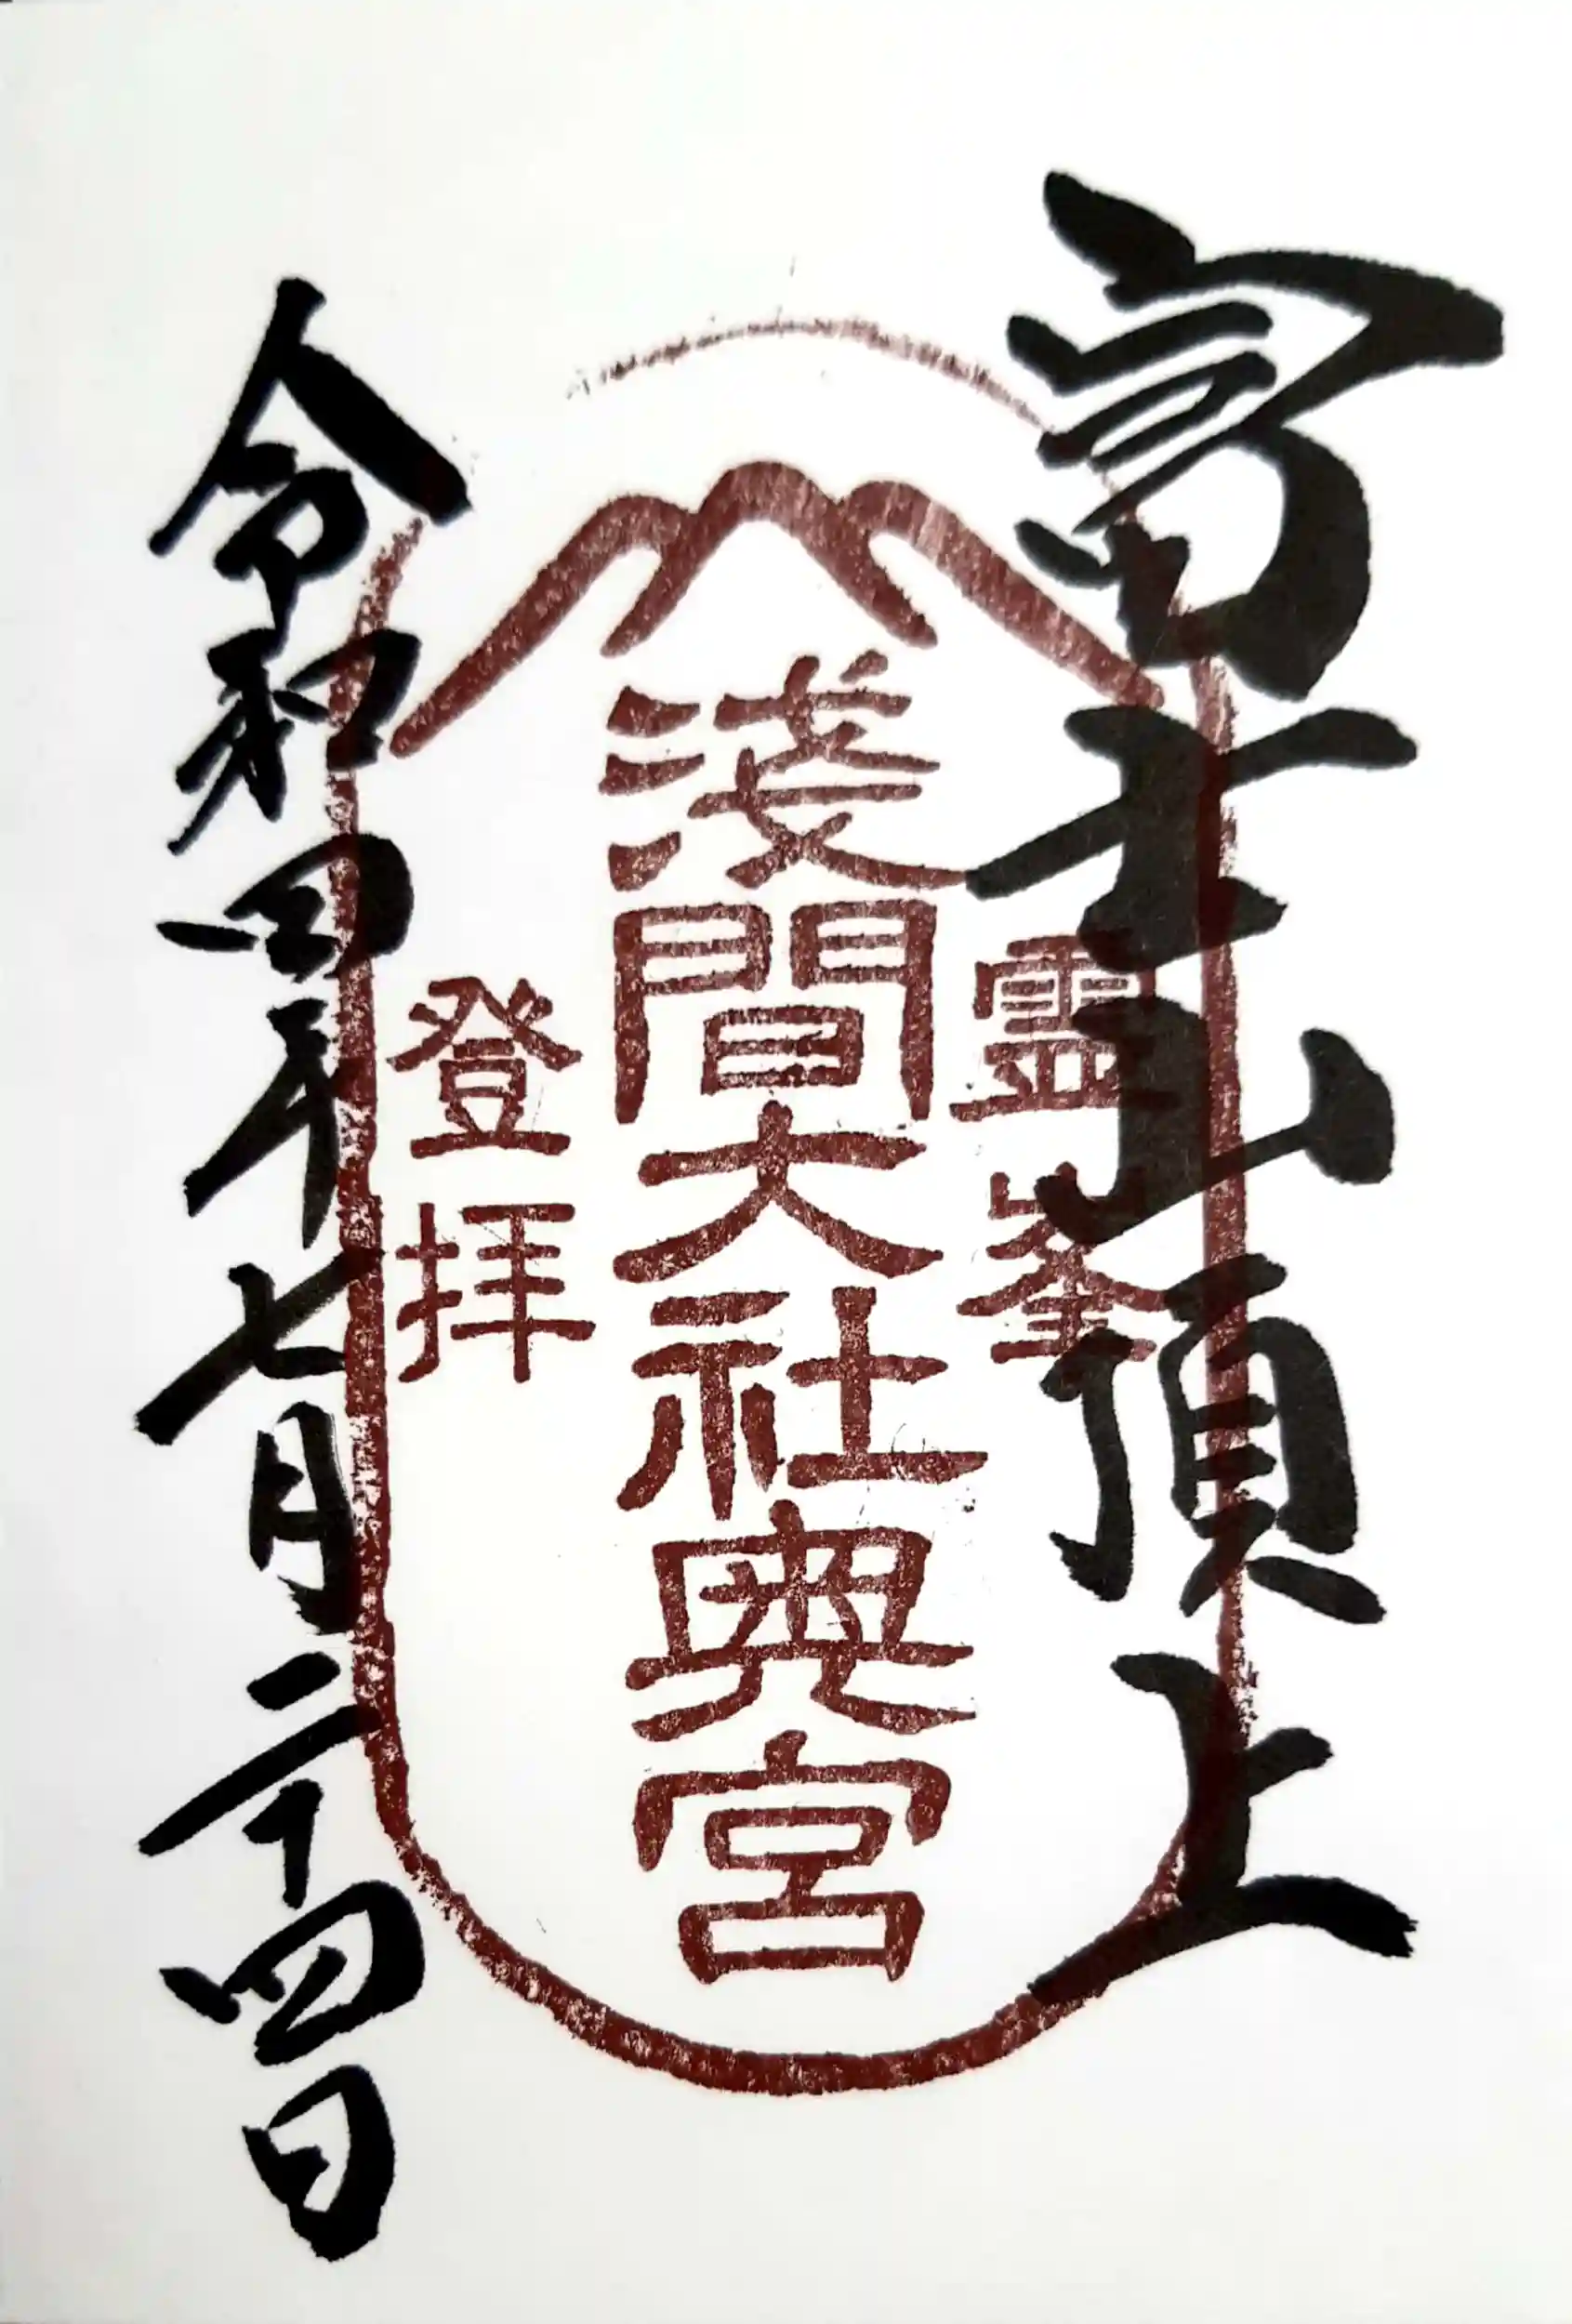 富士山頂上
霊峯
淺間大社奥宮
登拝
令和四年七月二十四日